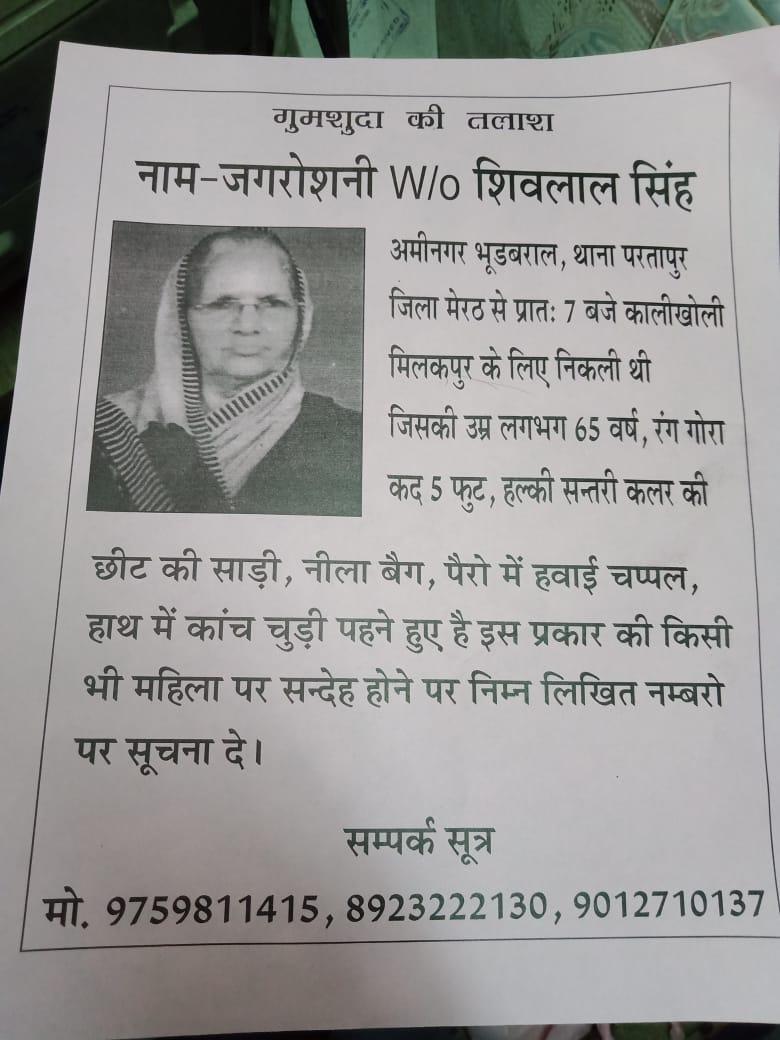 गुमशुदा की तलाश
नाम-जगरोशनी W/o शिवलाल सिंह
अमीनगर भूडबराल, थाना परतापुर
जिला मेरठ से प्रातः 7 बजे कालीखोली
मिलकपुर के लिए निकली थी
जिसकी उम्र लगभग 65 वर्ष, रंग गोरा
कद 5 फुट, हल्की सन्तरी कलर की
छीट की साड़ी, नीला बैग, पैरो में हवाई चप्पल,
हाथ में कांच चुड़ी पहने हुए है इस प्रकार की किसी
भी महिला पर सन्देह होने पर निम्न लिखित नम्बरो
पर सूचना दे।
सम्पर्क सूत्र
मो. 9759811415, 8923222130, 9012710137